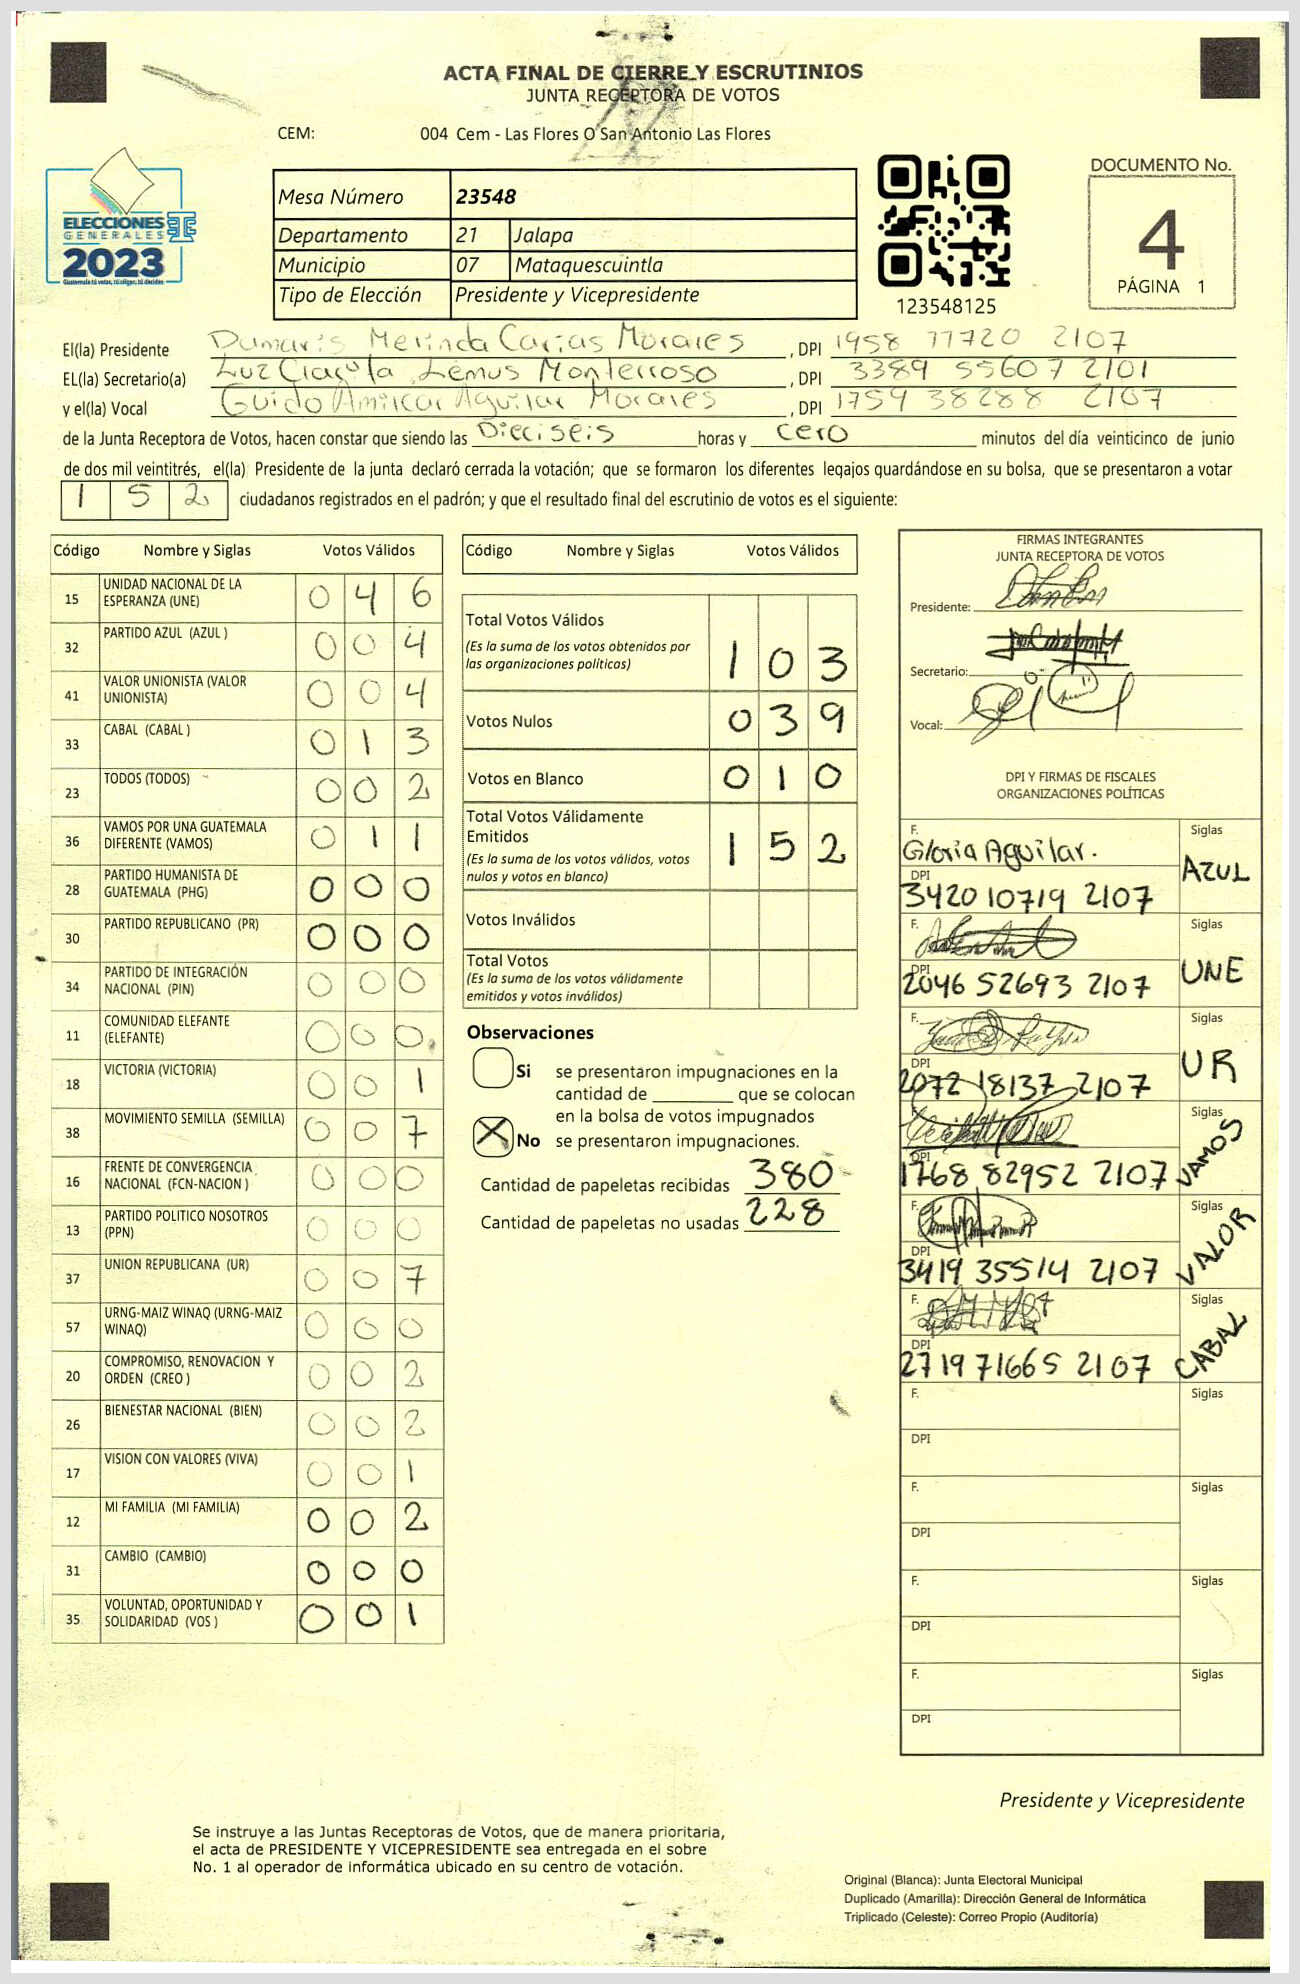 ACTA FINAL DE CIERRE Y ESCRUTINIOS
JUNTA RECEPTORA DE VOTOS
CEM: 004 Cem - Las Flores O San Antonio Las Flores
ELECCIONES
GENERALES
2023
Guatemala tú votas, tú eliges, tú decides
Mesa Número 23548
Departamento 21 Jalapa
Municipio 07 Mataquescuintla
Tipo de Elección Presidente y Vicepresidente
123548125
DOCUMENTO No.
4
PÁGINA 1
El(la) Presidente Damaris Merinda Carias Morales, DPI 1958 77720 2107
EL(la) Secretario(a) Luz Lemus Monterroso, DPI 3389 55607 2101
y el(la) Vocal Guido Amilcar Aguilar Morales, DPI 1759 38288 2107
de la Junta Receptora de Votos, hacen constar que siendo las Dieciseis horas y cero minutos del día veinticinco de junio
de dos mil veintitrés, el(la) Presidente de la junta declaró cerrada la votación; que se formaron los diferentes legajos quardándose en su bolsa, que se presentaron a votar
1 5 2 ciudadanos registrados en el padrón; y que el resultado final del escrutinio de votos es el siguiente:
Código Nombre y Siglas Votos Válidos
15 UNIDAD NACIONAL DE LA
ESPERANZA (UNE) 0 4 6
32 PARTIDO AZUL (AZUL ) 0 0 4
41 VALOR UNIONISTA (VALOR
UNIONISTA) 0 0 4
33 CABAL (CABAL ) 0 1 3
23 TODOS (TODOS) 0 0 2
36 VAMOS POR UNA GUATEMALA
DIFERENTE (VAMOS) 0 1 1
28 PARTIDO HUMANISTA DE
GUATEMALA (PHG) 0 0 0
30 PARTIDO REPUBLICANO (PR) 0 0 0
34 PARTIDO DE INTEGRACIÓN
NACIONAL (PIN) 0 0 0
11 COMUNIDAD ELEFANTE
(ELEFANTE) 0 0 0
18 VICTORIA (VICTORIA) 0 0 1
38 MOVIMIENTO SEMILLA (SEMILLA) 0 0 7
16 FRENTE DE CONVERGENCIA
NACIONAL (FCN-NACION ) 0 0 0
13 PARTIDO POLITICO NOSOTROS
(PPN) 0 0 0
37 UNION REPUBLICANA (UR) 0 0 7
57 URNG-MAIZ WINAQ (URNG-MAIZ
WINAQ) 0 0 0
20 COMPROMISO, RENOVACION Y
ORDEN (CREO ) 0 0 2
26 BIENESTAR NACIONAL (BIEN) 0 0 2
17 VISION CON VALORES (VIVA) 0 0 1
12 MI FAMILIA (MI FAMILIA) 0 0 2
31 CAMBIO (CAMBIO) 0 0 0
35 VOLUNTAD, OPORTUNIDAD Y
SOLIDARIDAD (VOS ) 0 0 1
Código Nombre y Siglas Votos Válidos
Total Votos Válidos
(Es la suma de los votos obtenidos por
las organizaciones políticas) 1 0 3
Votos Nulos 0 3 9
Votos en Blanco 0 1 0
Total Votos Válidamente
Emitidos
(Es la suma de los votos válidos, votos
nulos y votos en blanco) 1 5 2
Votos Inválidos
Total Votos
(Es la suma de los votos válidamente
emitidos y votos inválidos)
Observaciones
Si se presentaron impugnaciones en la
cantidad de ________ que se colocan
en la bolsa de votos impugnados
X No se presentaron impugnaciones.
Cantidad de papeletas recibidas 380
Cantidad de papeletas no usadas 228
FIRMAS INTEGRANTES
JUNTA RECEPTORA DE VOTOS
Presidente:
Secretario:
Vocal:
DPI Y FIRMAS DE FISCALES
ORGANIZACIONES POLÍTICAS
F. Gloria Aguilar. Siglas
DPI 3420 10719 2107 AZUL
F. Siglas
DPI 2046 52693 2107 UNE
F. Siglas
DPI 2072 18137 2107 UR
F. Siglas
DPI 1768 82952 2107 VAMOS
F. Siglas
DPI 3419 35514 2107 VALOR
F. Siglas
DPI 2719 71665 2107 CABAL
F. Siglas
DPI
F. Siglas
DPI
F. Siglas
DPI
F. Siglas
DPI
Presidente y Vicepresidente
Se instruye a las Juntas Receptoras de Votos, que de manera prioritaria,
el acta de PRESIDENTE Y VICEPRESIDENTE sea entregada en el sobre
No. 1 al operador de informática ubicado en su centro de votación.
Original (Blanca): Junta Electoral Municipal
Duplicado (Amarilla): Dirección General de Informática
Triplicado (Celeste): Correo Propio (Auditoría)